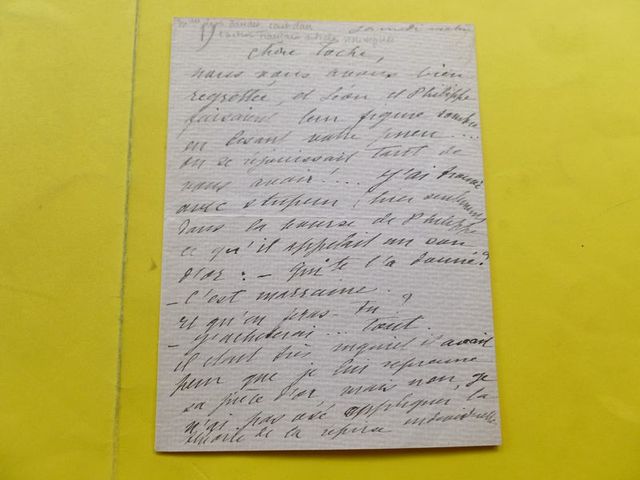 Samedi matin
Chère Toche,
nous vous avons bien
regrettée, et Léon et Philippe
faisaient leur figure sombre
en lisant votre pneu....
on se réjouissait tant de
vous avoir!.... J'ai trouvé
avec stupeur, hier seulement,
dans la bourse de Philippe
ce qu'il appelait un sou
d'or: - Qui te l'a donné?
- C'est marraine.
et qu'en feras-tu?
- J'achèterai... tout.
il était très inquiet il avait
peur que je lui reprenne
sa pièce d'or, mais non, je
n'ai pas osé appliquer la
théorie de la reprise individuelle